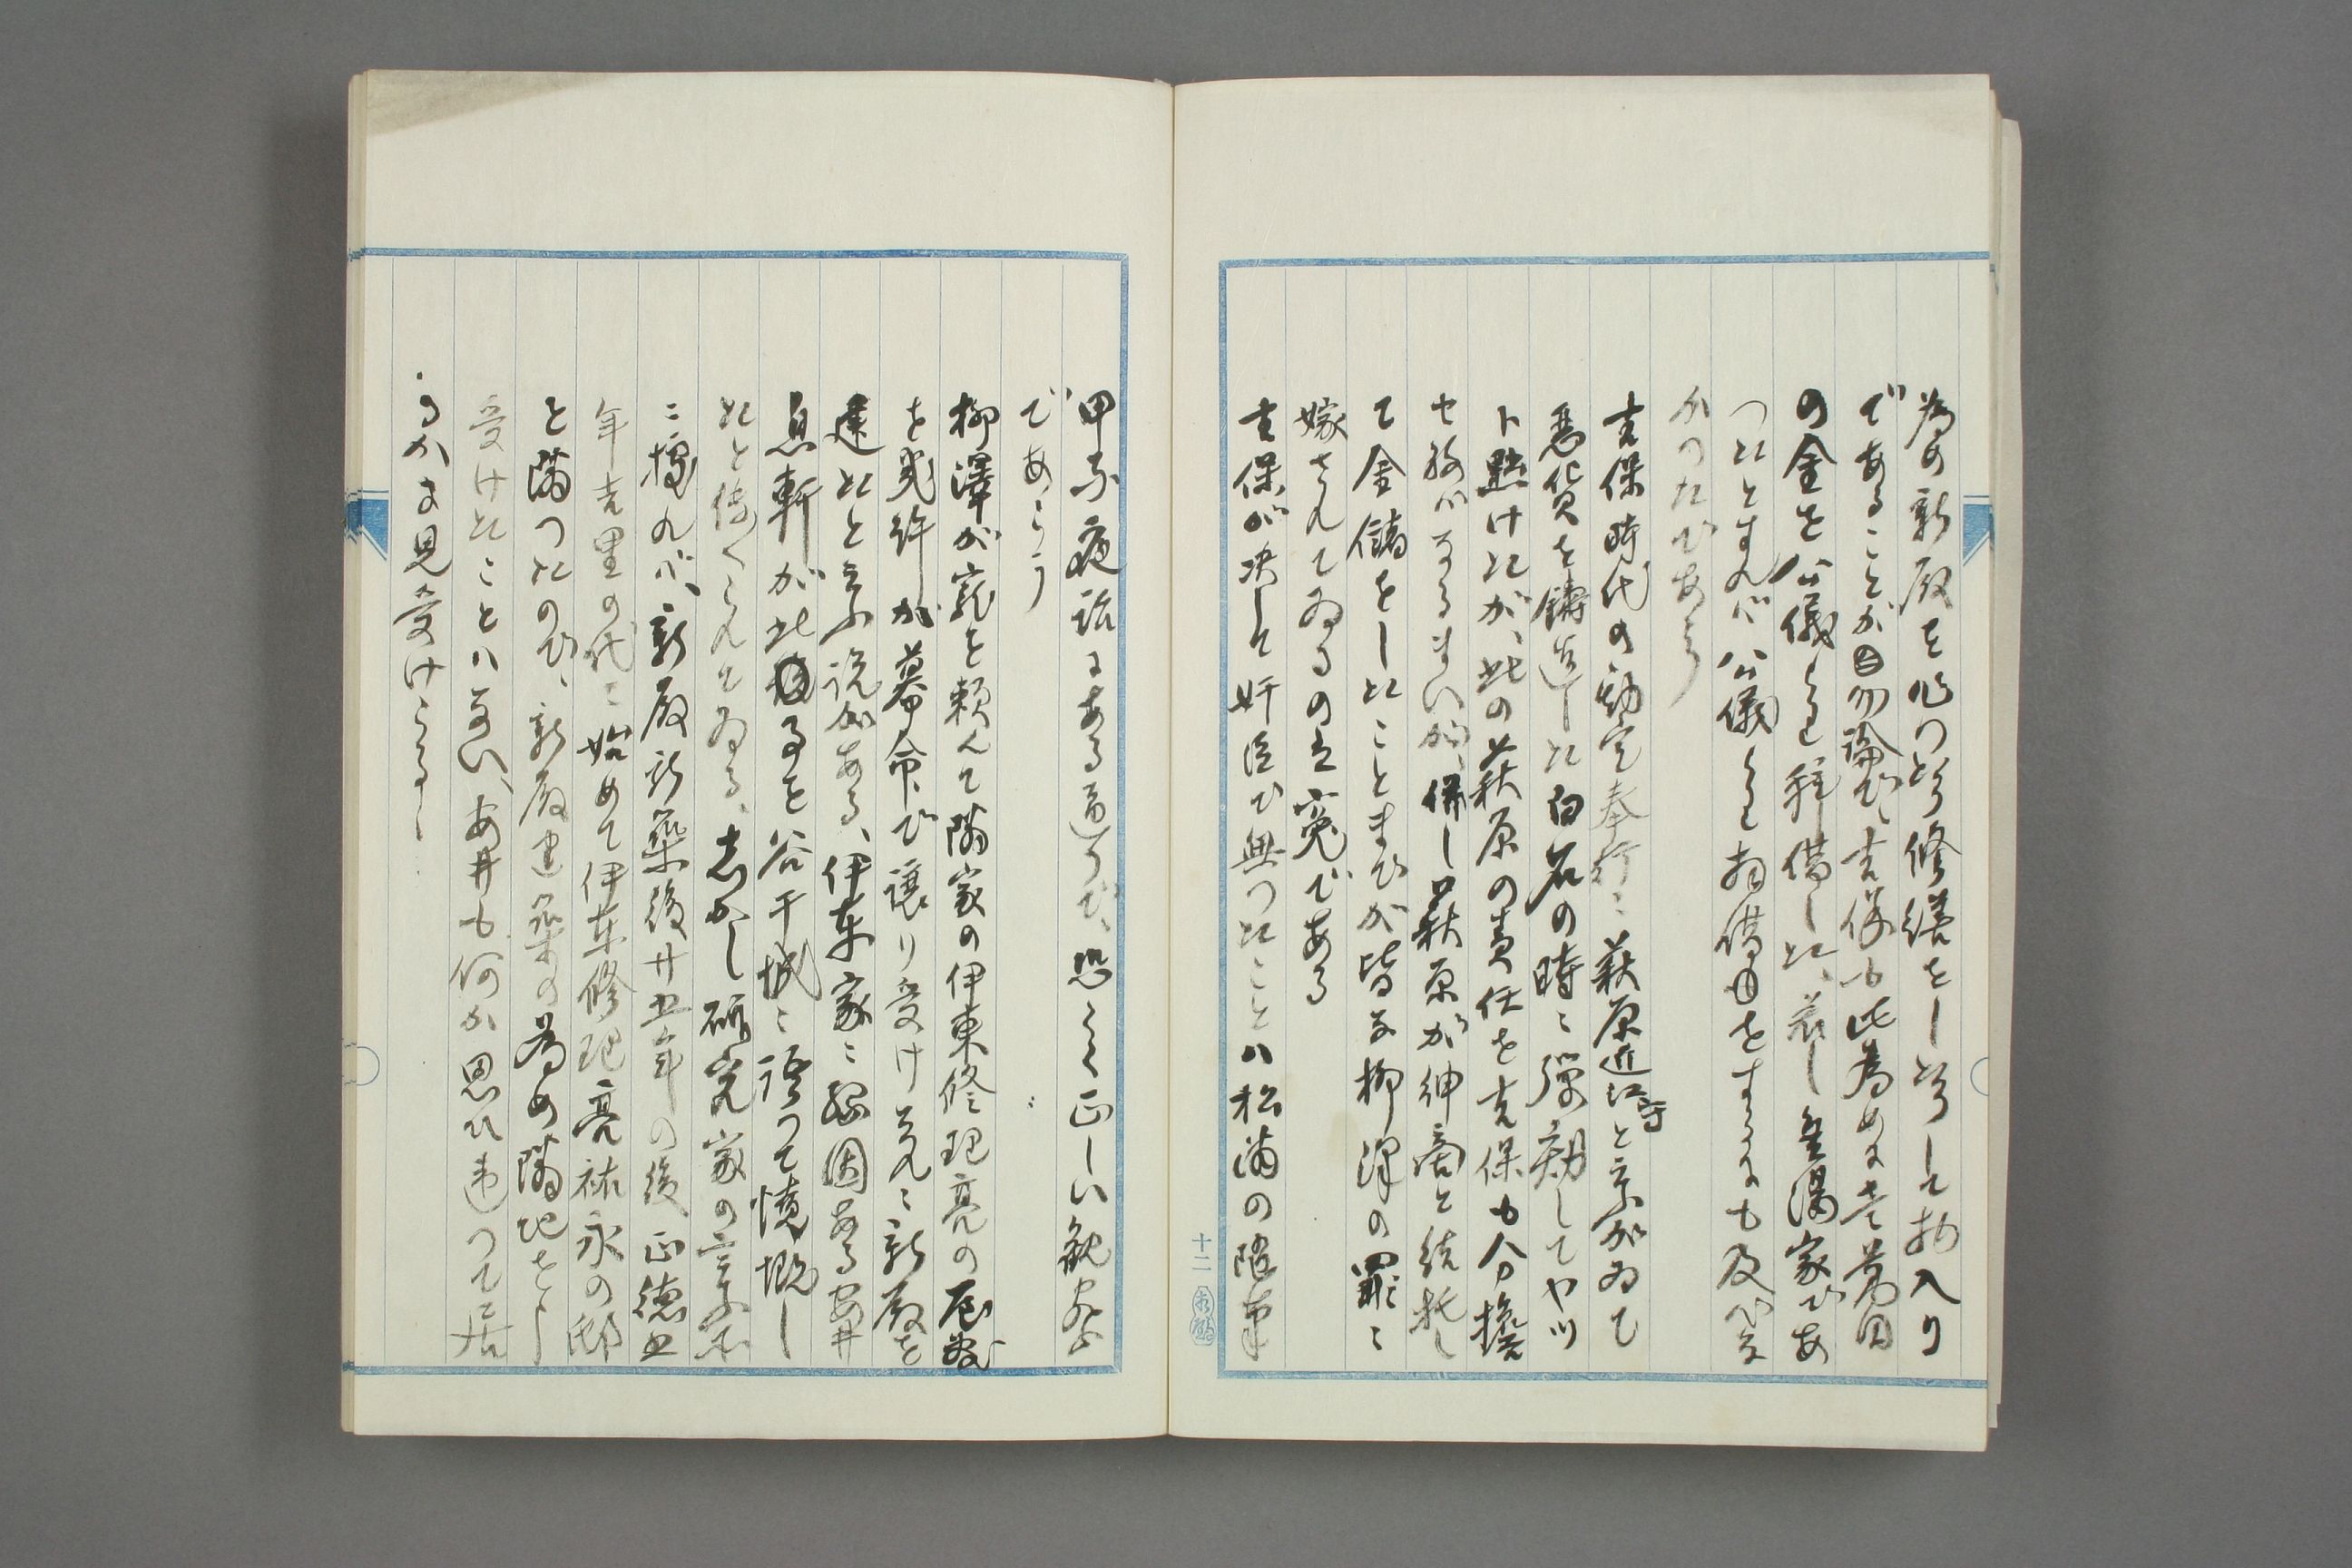 為め新殿を作つたり修繕をしたりして物入り
であることが勿論で、吉保も此為めに壱万両
の金を公儀より拝借した、若し金満家であ
つたとすれバ公儀より拝借をするにも及バな
かつたであらう
吉保時代の勘定奉行ニ萩原近江守と云がゐて
悪貨を鋳造した白石の時ニ弾劾してヤツ
ト黜けたが、此の萩原の責任を吉保も分擔
セ
ねバなるまいが、併し萩原が紳商と結託し
て金儲をしたことまでが皆な柳澤の罪ニ
嫁されてゐるのは寃である
吉保が决して奸臣で無つたことハ松浦の隠事
十二
甲子夜話にある通りで、恐らく正しい観察
であらう
柳澤が寵を頼んで隣家の伊東修理亮の屋敷
を幾許か幕命で譲り受け
 ニ新殿を
建たと云ふ説がある、伊東家ニ縁因ある安井
息軒が此事を谷干城ニ語つて憤慨し
たと傳へられてゐる、しかし研究家の言
ニ據れバ、新殿新築後廿五年の後正徳五
年吉里の代ニ始めて伊東修理亮祐永の邸
と隣つたので、新殿建築の為め隣地を
受けたことハない、安井も何か思ひ違つて居
るかに見受けらるゝ